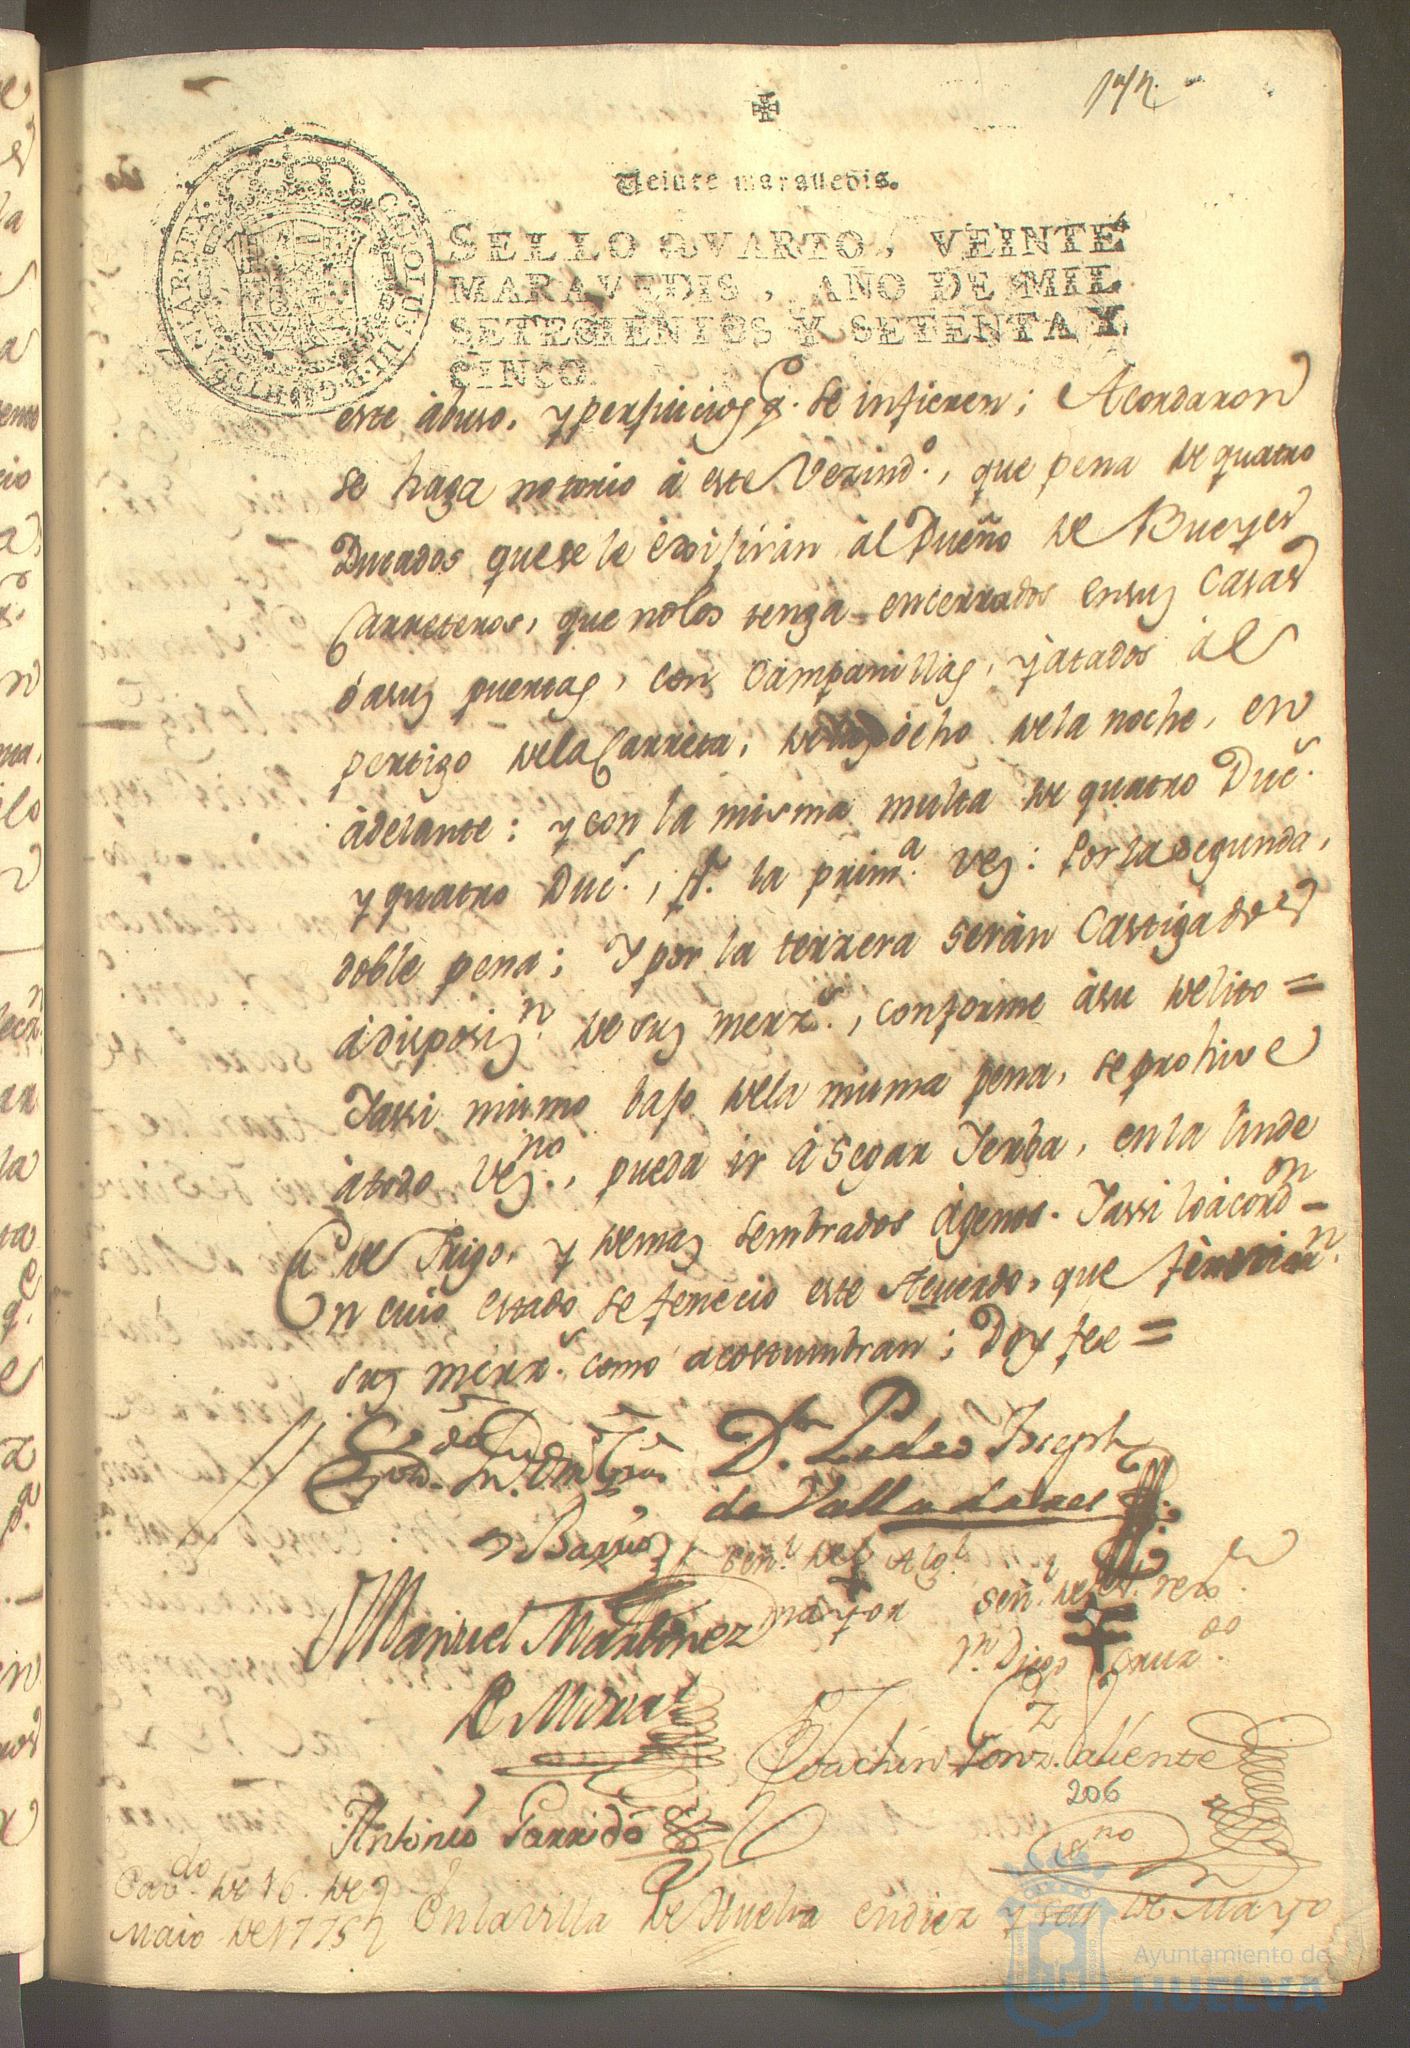 172
Veinte marauedis.
SELLO QVARTO, VEINTE
MARAVEDIS, AÑO DE MIL
SETECIENTOS Y SETENTA Y
CINCO.
este abuso, y perjuicios q. se infieren; Acordaron
se haga notorio à este Vezind.º, que pena de quatro
Ducados que se le exijiràn àl Dueño de Bueyes
Carreteros, que no los tenga encerrados en sus Casas
ò a sus puertas, con Campanillas, y atados àl
pertigo de la Carreta, de las ocho de la noche, en
àdelante: y con la misma multa de quatro Duc.s
y quatro Duc.s, p.r la prim.a vez: por la segunda,
doble pena; Y por la terzera seràn Castigados
à disposiz.n de sus merz.s, conforme à su delito =
Y assi mismo bajo de la misma pena, se prohive
à todo vez.no, pueda ir à segar Yerba, en la linde
de trigo, y demas sembrados àgenos. Y assi lo àcord.on -
En cuio estado se fenecio este Acuerdo, que firmaron
sus merz.s como acostumbran; Doy fee =
D.n Pedro Joseph
de Valladares
Barrios
Señ.l del Alg.l
mayor
Señ.l del
Manuel Martinez
de Mora
Diego Cruz.do
Joachin Gonz.z Caliente
206
Antonio Garrido
ss.no
Cav.do de 16. de
Maio de 1775
En la villa de Huelva en diez y seis de Mayo
Ayuntamiento de
HUELVA